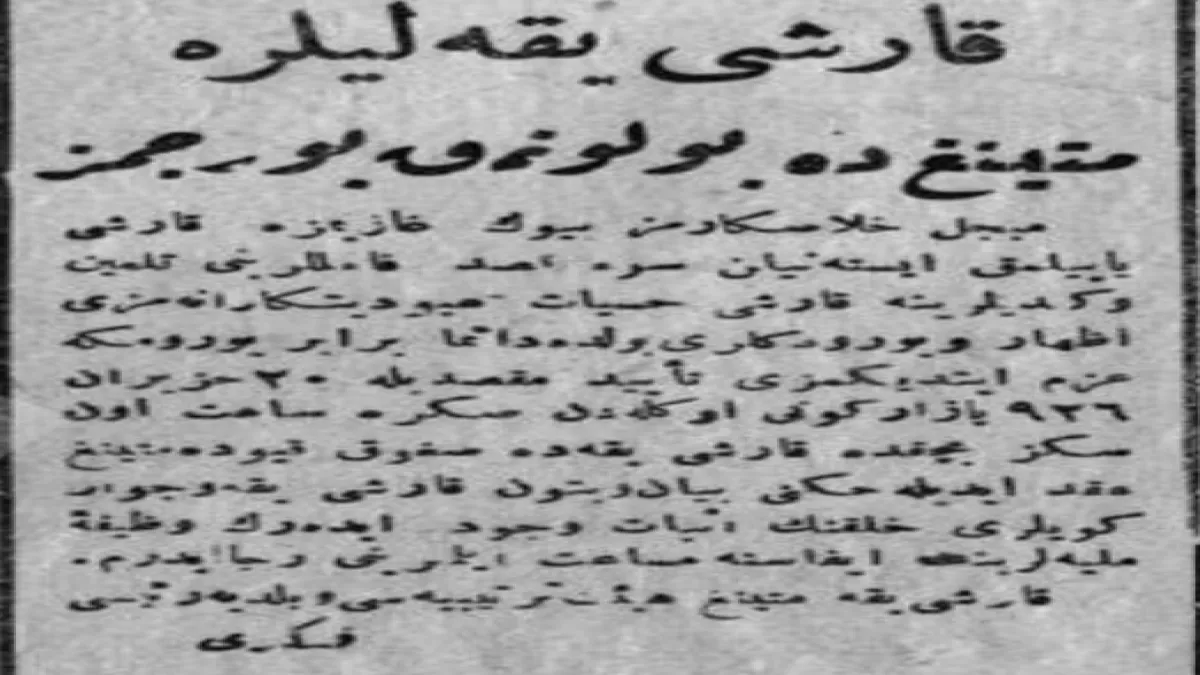 قارشی یقه لیلره
متینغ ده بولونمق بورجمز
مبجل خلاصكارمز بیوك غازیمزه قارشی
یاپیلمق ایسته‌نیلن سوء قصد فاعللرینی تلعین
وكندیلرینه قارشی حسیات عبودیتكارانه‌مزی
اظهار و یورودكلری یولده‌ دائما برابر یورومكه
عزم ایتدیكمزی تأیید مقصدیله ٢٠ حزیران
٩٢٦ پازار كونی اوكله‌دن صكره ساعت اون
سكز بچقده قارشی یقه‌ده صغوق قیوده متینغ
عقد ایدیله‌جكنی بیان و بتون قارشی یقه و جوار
كویلری خلقنك اثبات وجود ایده‌رك وظیفهٔ
ملیه‌لرینك ایفاسنه مسارعت ایلمه‌لرینی رجا ایدرم.
قارشی یقه متینغ هیئت ترتیبیه‌سی و بلدیه رئیسی
فكری